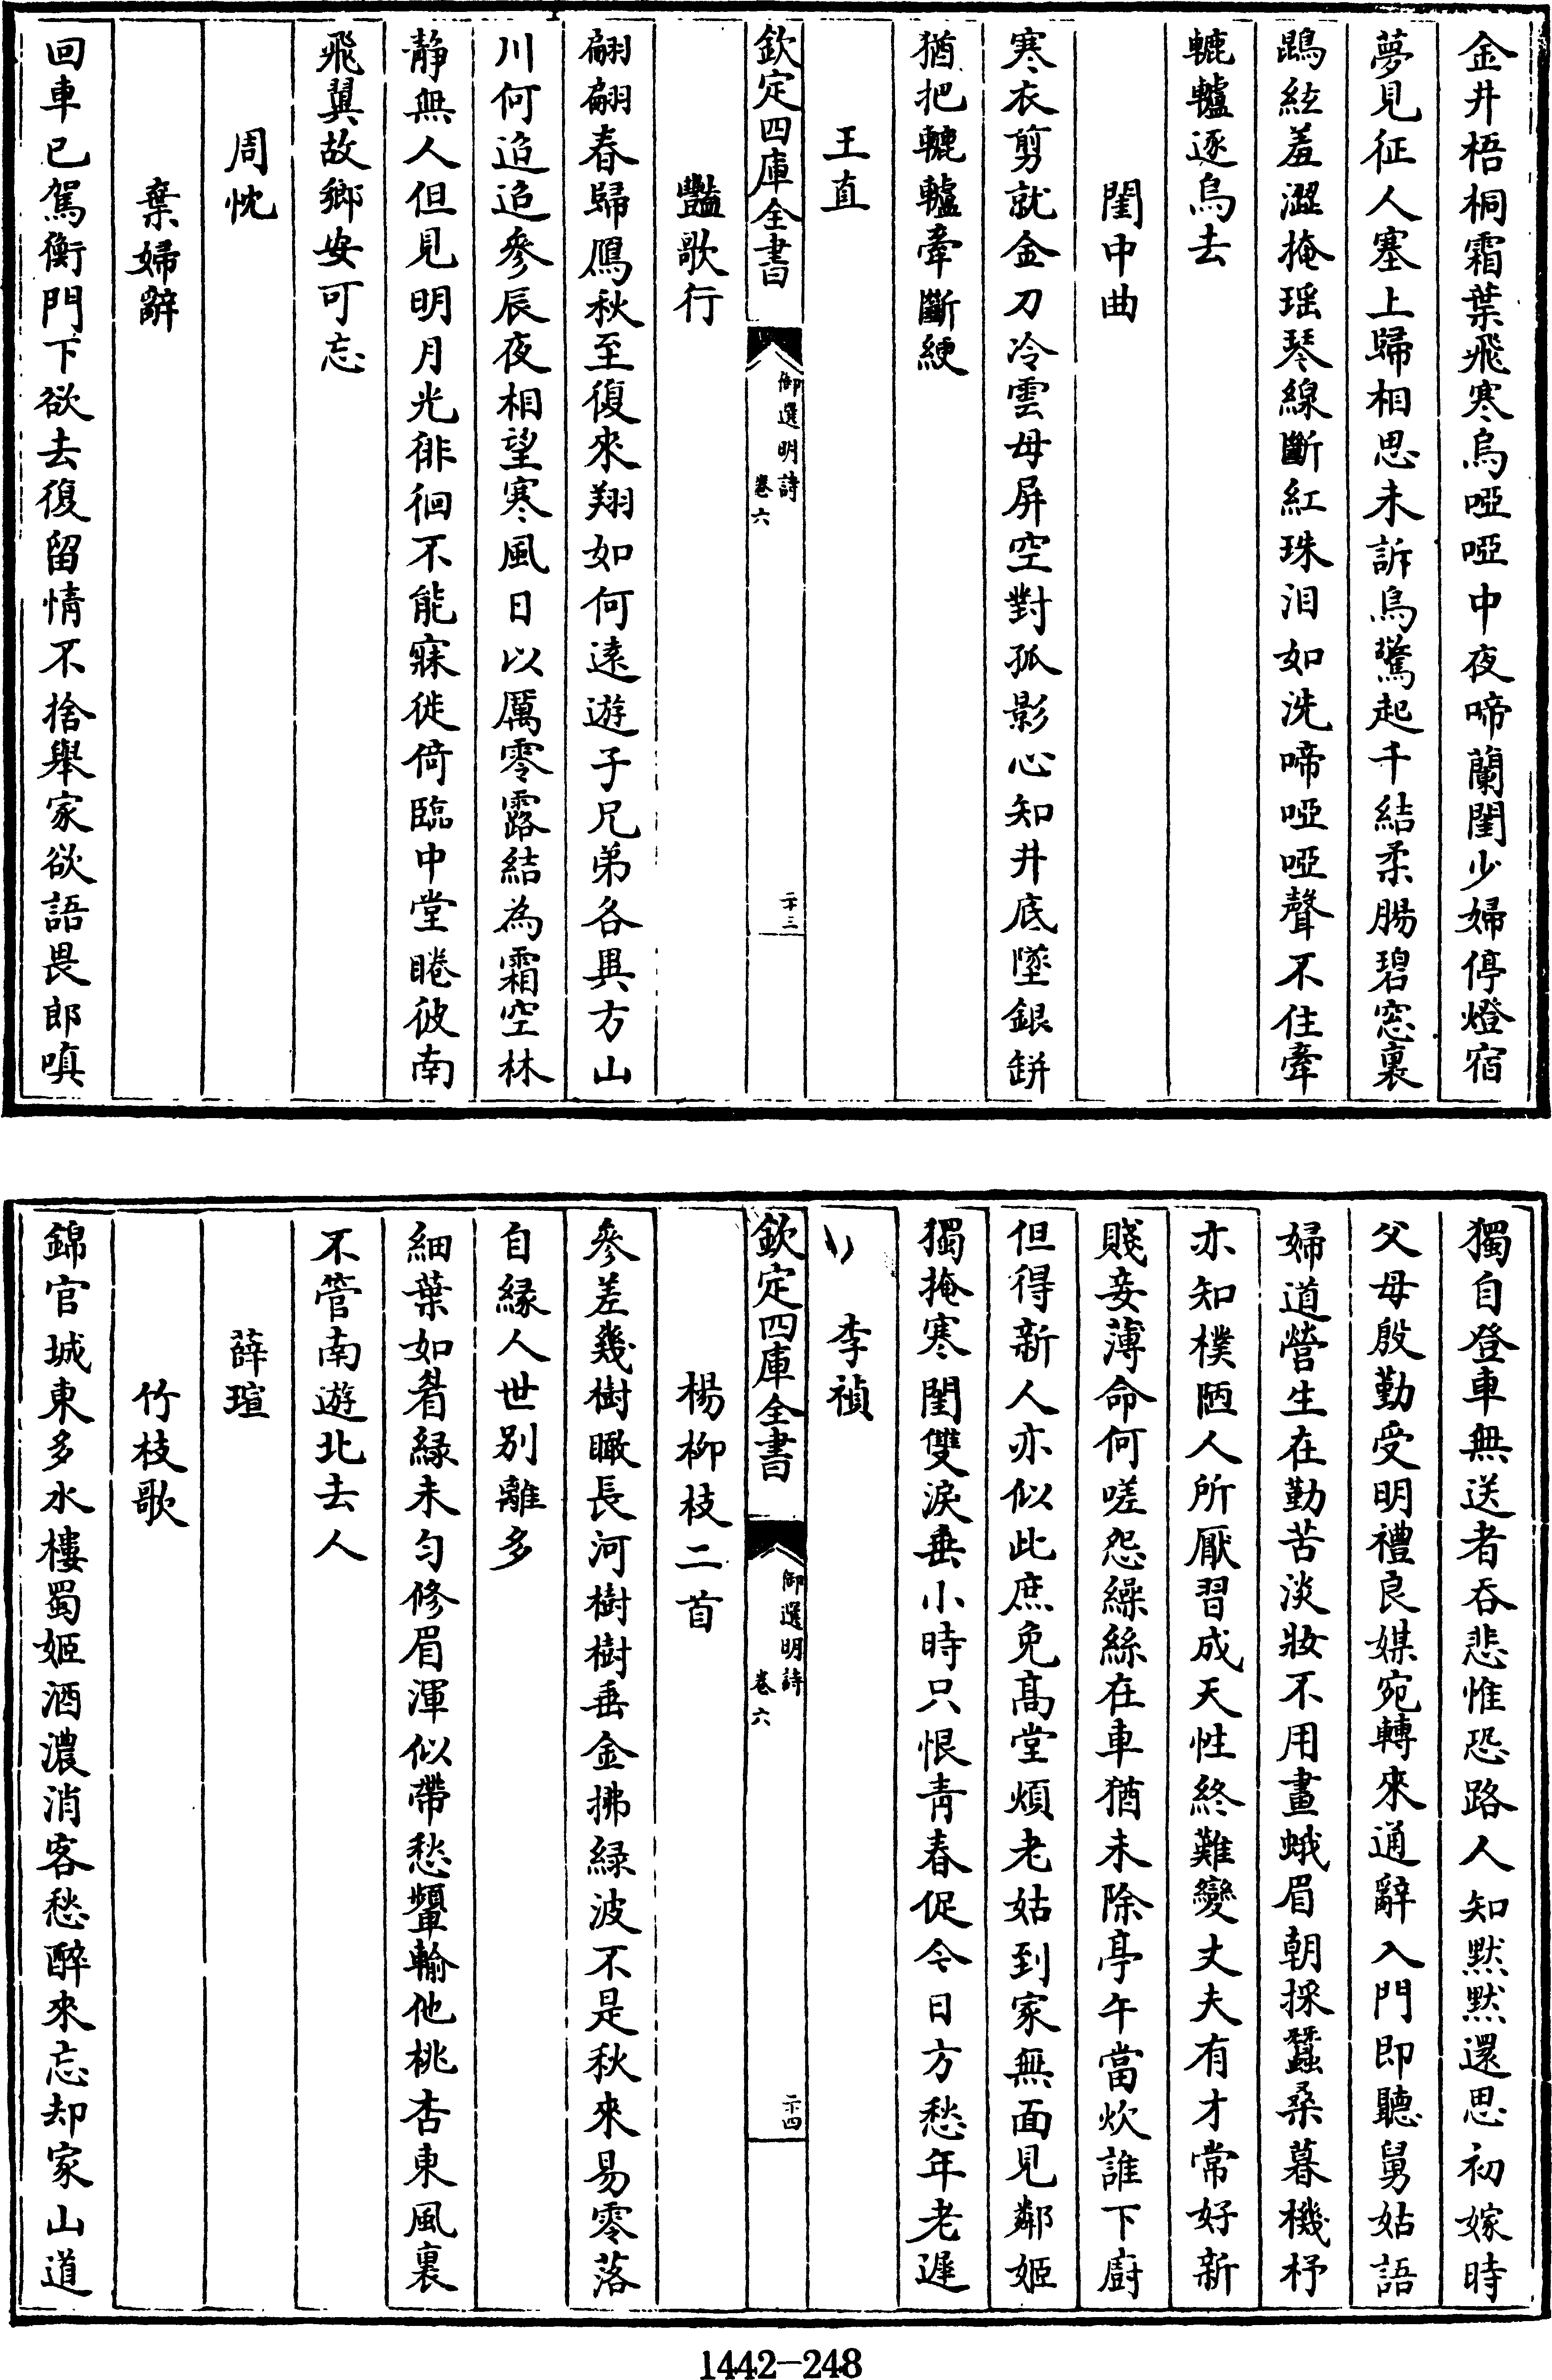 金井梧桐霜葉飛寒烏啞啞中夜啼蘭閨少婦停燈宿
夢見征人塞上歸相思未訴烏驚起千結柔腸碧窓裏
鵾絃羞澀掩瑶琴線斷紅珠泪如洗啼啞啞聲不住牽
轆轤逐烏去
閨中曲
寒衣剪就金刀冷雲母屏空對孤影心知井底墜銀缾
猶把轆轤牽斷綆
王直
欽定四庫全書
御選明詩
卷六
二十三
豔歌行
翩翩春歸鴈秋至復來翔如何遠遊子兄弟各異方山
川何迢迢參辰夜相望寒風日以厲零露結為霜空林
靜無人但見明月光徘徊不能寐徙倚臨中堂睠彼南
飛翼故鄉安可忘
周忱
棄婦辭
回車已駕衡門下欲去復留情不捨舉家欲語畏郎嗔
獨自登車無送者吞悲惟恐路人知默默還思初嫁時
父母殷勤受明禮良媒宛轉來通辭入門即聽舅姑語
婦道營生在勤苦淡妝不用畫蛾眉朝採蠶桑暮機杼
亦知樸陋人所厭習成天性終難變丈夫有才常好新
賤妾薄命何嗟怨繰絲在車猶未除亭午當炊誰下廚
但得新人亦似此庶免髙堂煩老姑到家無面見鄰姬
獨掩寒閨雙淚垂小時只恨青春促今日方愁年老遲
李禎
欽定四庫全書
御選明詩
卷六
二十四
楊柳枝二首
參差幾樹瞰長河樹樹垂金拂緑波不是秋來易零落
自緣人世别離多
細葉如着緑未匀修眉渾似帶愁顰輸他桃杏東風裏
不管南遊北去人
薛瑄
竹枝歌
錦官城東多水樓蜀姬酒濃消客愁醉來忘却家山道
1442—248